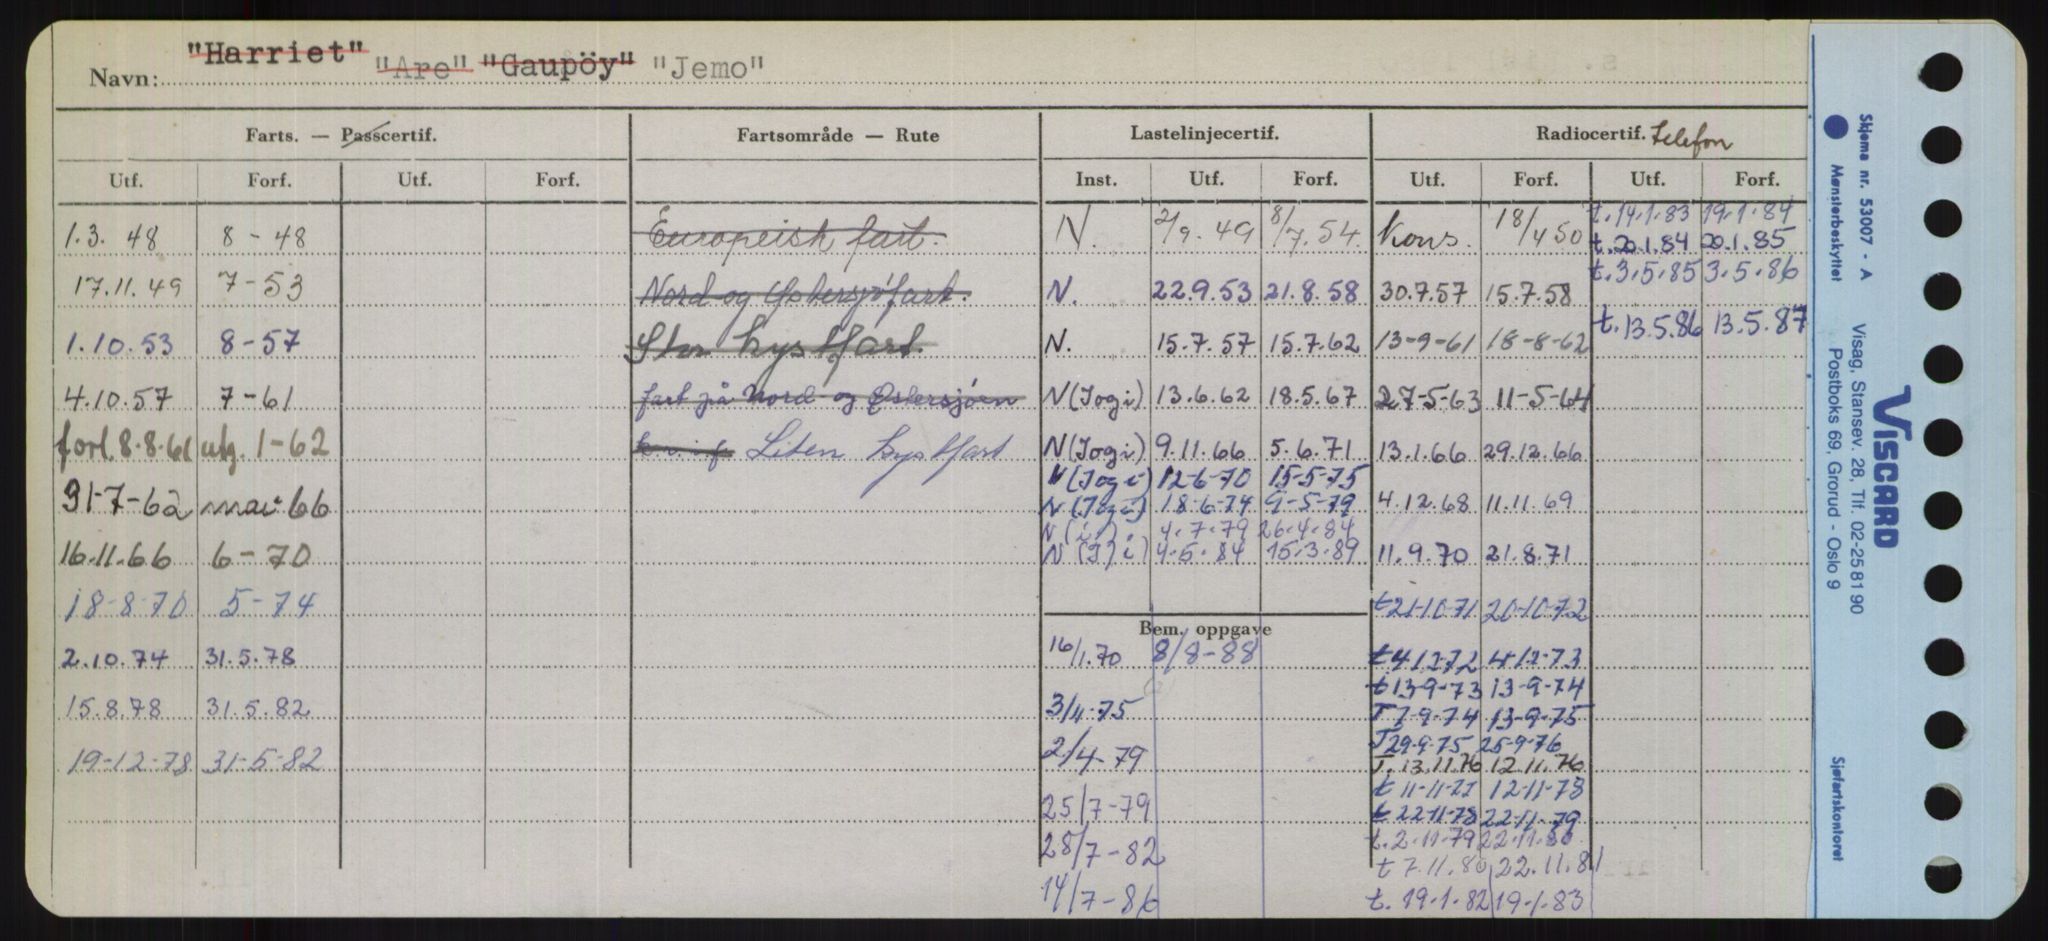 "Harriet" "Are" "Gaupöy" "Jemo"
Navn:
Farts. — Passcertif.
Utf. Forf. Utf. Forf.
1.3. 48 8 - 48
17.11.49 7-53
1.10.53 8-57
4.10.57 7-61
forl. 8.8.61 utg. 1-62
31-7-62 mai 66
16.11.66 6-70
18-8-70 5-74
2.10.74 31.5.78
15.8.78 31.5.82
19-12-78 31-5-82
Fartsområde — Rute
Europeisk fart.
Nord og Østersjöfart.
Stor kystfart.
fart på Nord- og Østersjøen
Liten kystfart
Lastelinjecertif.
Inst. Utf. Forf.
N. 2/9. 49 8/7.54
N. 22.9.53 21.8.58
N. 15.7.57 15.7.62
N (Jogi) 13.6.62 18.5.67
N (Jogi) 9.11.66 5.6.71
N (Jogi) 12-6-70 15-5-75
N (Jogi) 18-6-74 9-5-79
N 4.7.79 26.4.84
N 4.5.84 15.3.89
Bem. oppgave
16/1.70 8/8-88
3/4-75
2/4-79
25/7-79
28/7-82
14/7-86
Radiocertif. Telefon
Utf. Forf. Utf. Forf.
Kons. 18/4 50
30.7.57 15.7.58
13-9-61 18-8-62
27-5-63 11-5-64
13.1.66 29.12.66
4.12.68 11.11.69
11.9.70 21.8.71
t 21-10-71 20-10-72
t 4.12-72 4-12-73
t 13-9-73 13-9-74
T 7-9-74 13-9-75
T 29-9-75 25-9-76
T. 13.11.76 12.11.76
t 11-11-77 12-11-78
t 22-11-78 22-11-79
t. 2-11-79 22.11.80
t 7.11.80 22.11.81
t. 19.1.82 19.1.83
t. 14.1.83 19.1.84
t. 20.1.84 20.1.85
t. 3.5.85 3.5.86
t. 13.5.86 13.5.87
Skjema nr. 53007 - A
Mønsterbeskyttet
VISCARD
Visag, Stansev. 28, Tlf. 02-25 81 90
Postboks 69, Grorud - Oslo 9
Sjøfartskontoret